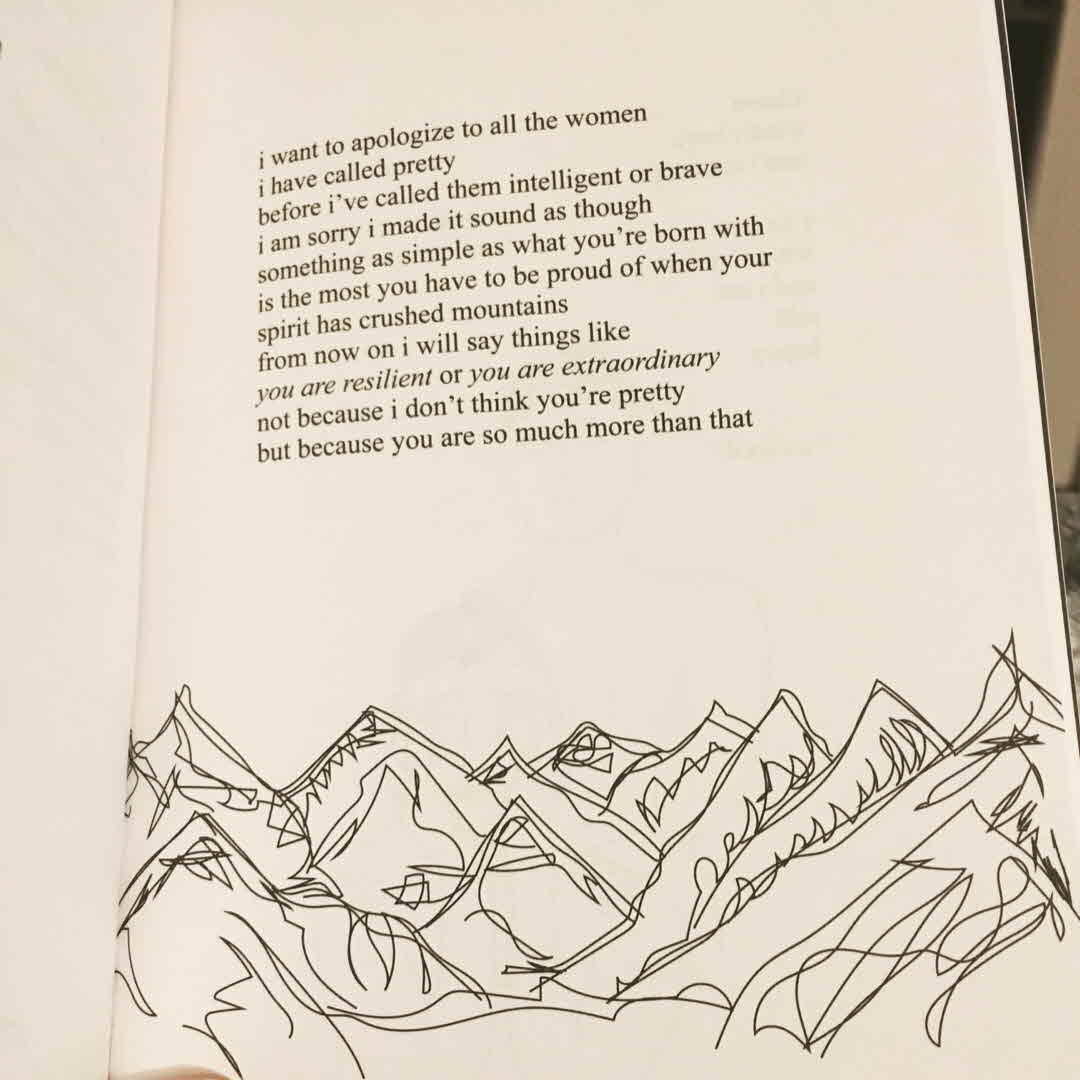 i want to apologize to all the women
i have called pretty
before i’ve called them intelligent or brave
i am sorry i made it sound as though
something as simple as what you’re born with
is the most you have to be proud of when your
spirit has crushed mountains
from now on i will say things like
you are resilient or you are extraordinary
not because i don’t think you’re pretty
but because you are so much more than that